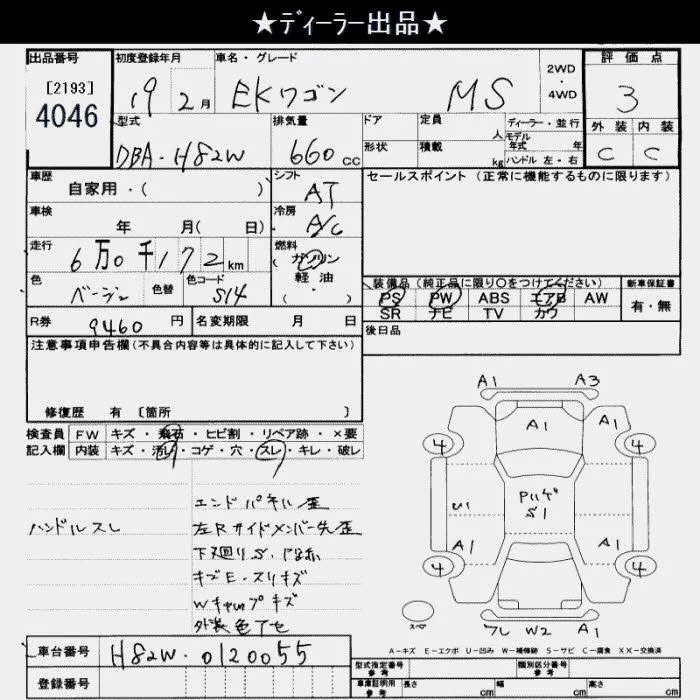 ★ディーラー出品★
出品番号 初度登録年月 車名・グレード 2WD・4WD 評価点
[2193]
4046
19 2月 EKワゴン MS 3
型式 排気量 ドア 定員 人 ディーラー・並行 外装 内装
モデル年式 年
DBA-H82W 660cc 形状 積載 kg ハンドル 左・右 C C
車歴 シフト セールスポイント (正常に機能するものに限ります)
自家用・( ) AT
車検 冷房
年 月( 日) A/C
走行 燃料
6万0千172km (ガソリン
軽油・)
色 色替 色コード 装備品 (純正品に限り○をつけてください) 新車保証書
ベージュ S14 PS PW ABS エアB AW 有・無
SR ナビ TV カワ
R券 9460円 名変期限 月 日 後日品
注意事項申告欄(不具合内容等は具体的に記入して下さい)
修復歴 有 [箇所 ]
検査員 FW キズ・飛石・ヒビ割・リペア跡・×要
記入欄 内装 キズ・汚れ・コゲ・穴・スレ・キレ・破レ
エンドパネル歪
ハンドルスレ 左Rサイドメンバー先歪
下廻りS・
キズE・スリキズ
Wキャップキズ
外装色アセ
A1 A3
A1 A1
4 4
S1
U1
A1 A1
4 4
スペア フレ W2 A1
A-キズ E-エクボ U-凹み W-補修跡 S-サビ C-腐食 XX-交換済
車台番号 H82W-0120055
型式指定番号 参考 類別区分番号 参考
登録番号 車庫証明用 参考 長さ cm 幅 cm 高さ cm